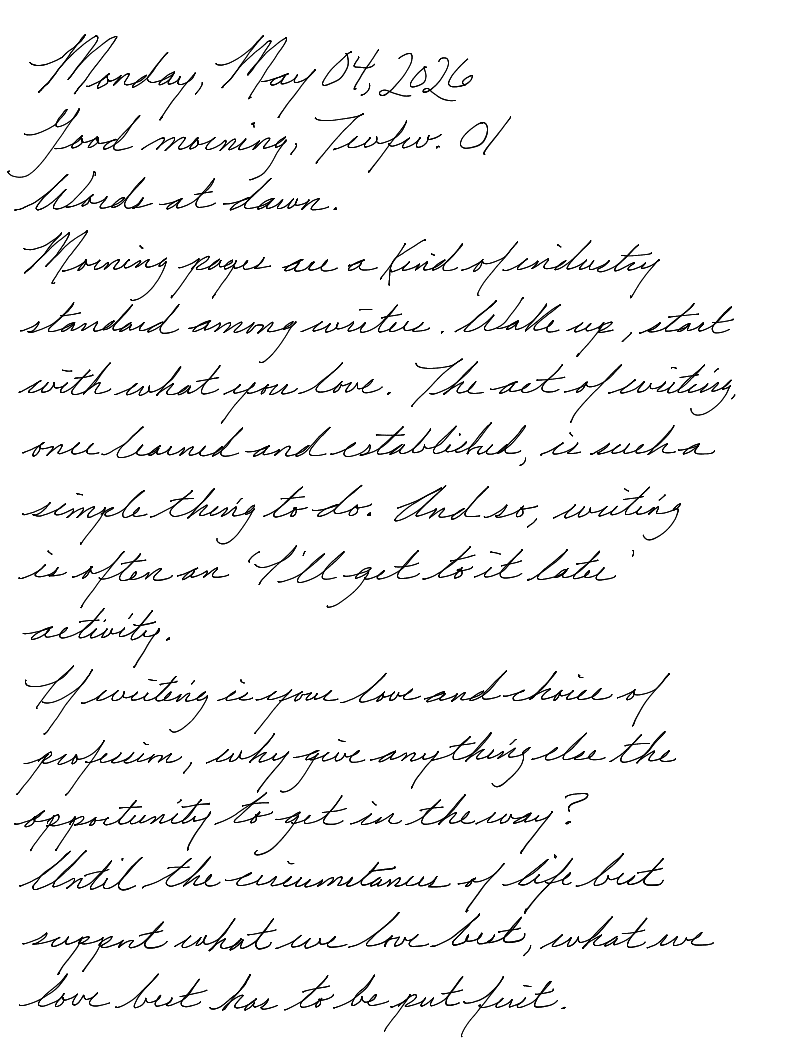 Monday, May 04, 2026
Good morning, Twfw. 01
Words at dawn.
Morning pages are a kind of industry
standard among writers. Wake up, start
with what you love. The act of writing,
once learned and established, is such a
simple thing to do. And so, writing
is often an 'I'll get to it later'
activity.
If writing is your love and choice of
profession, why give anything else the
opportunity to get in the way?
Until the circumstances of life best
support what we love best, what we
love best has to be put first.